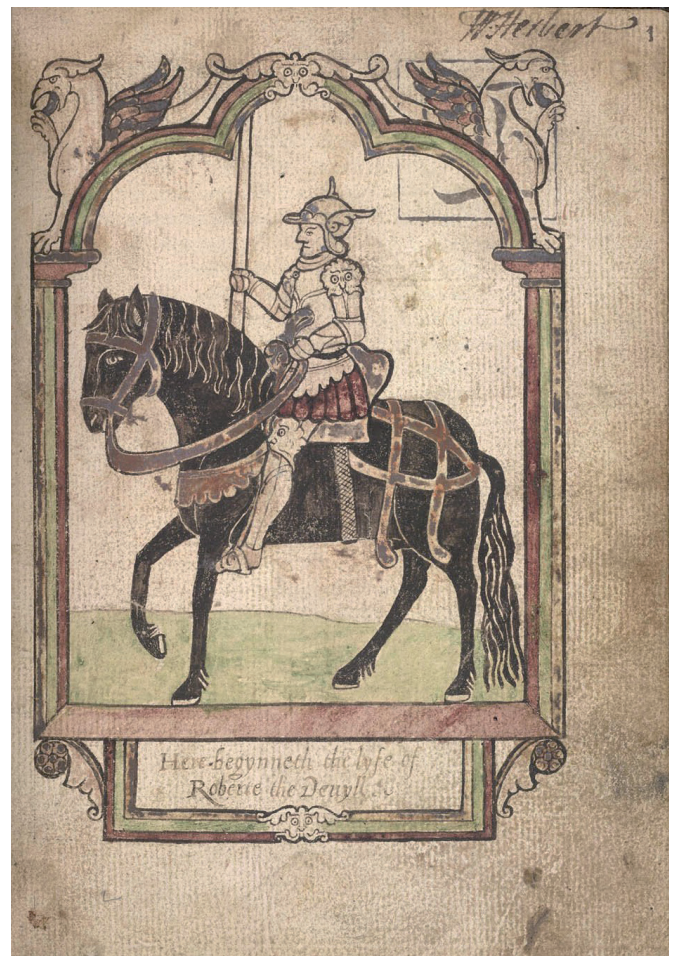 W Herbert
Here begynneth the lyfe of
Roberte the Deuyll